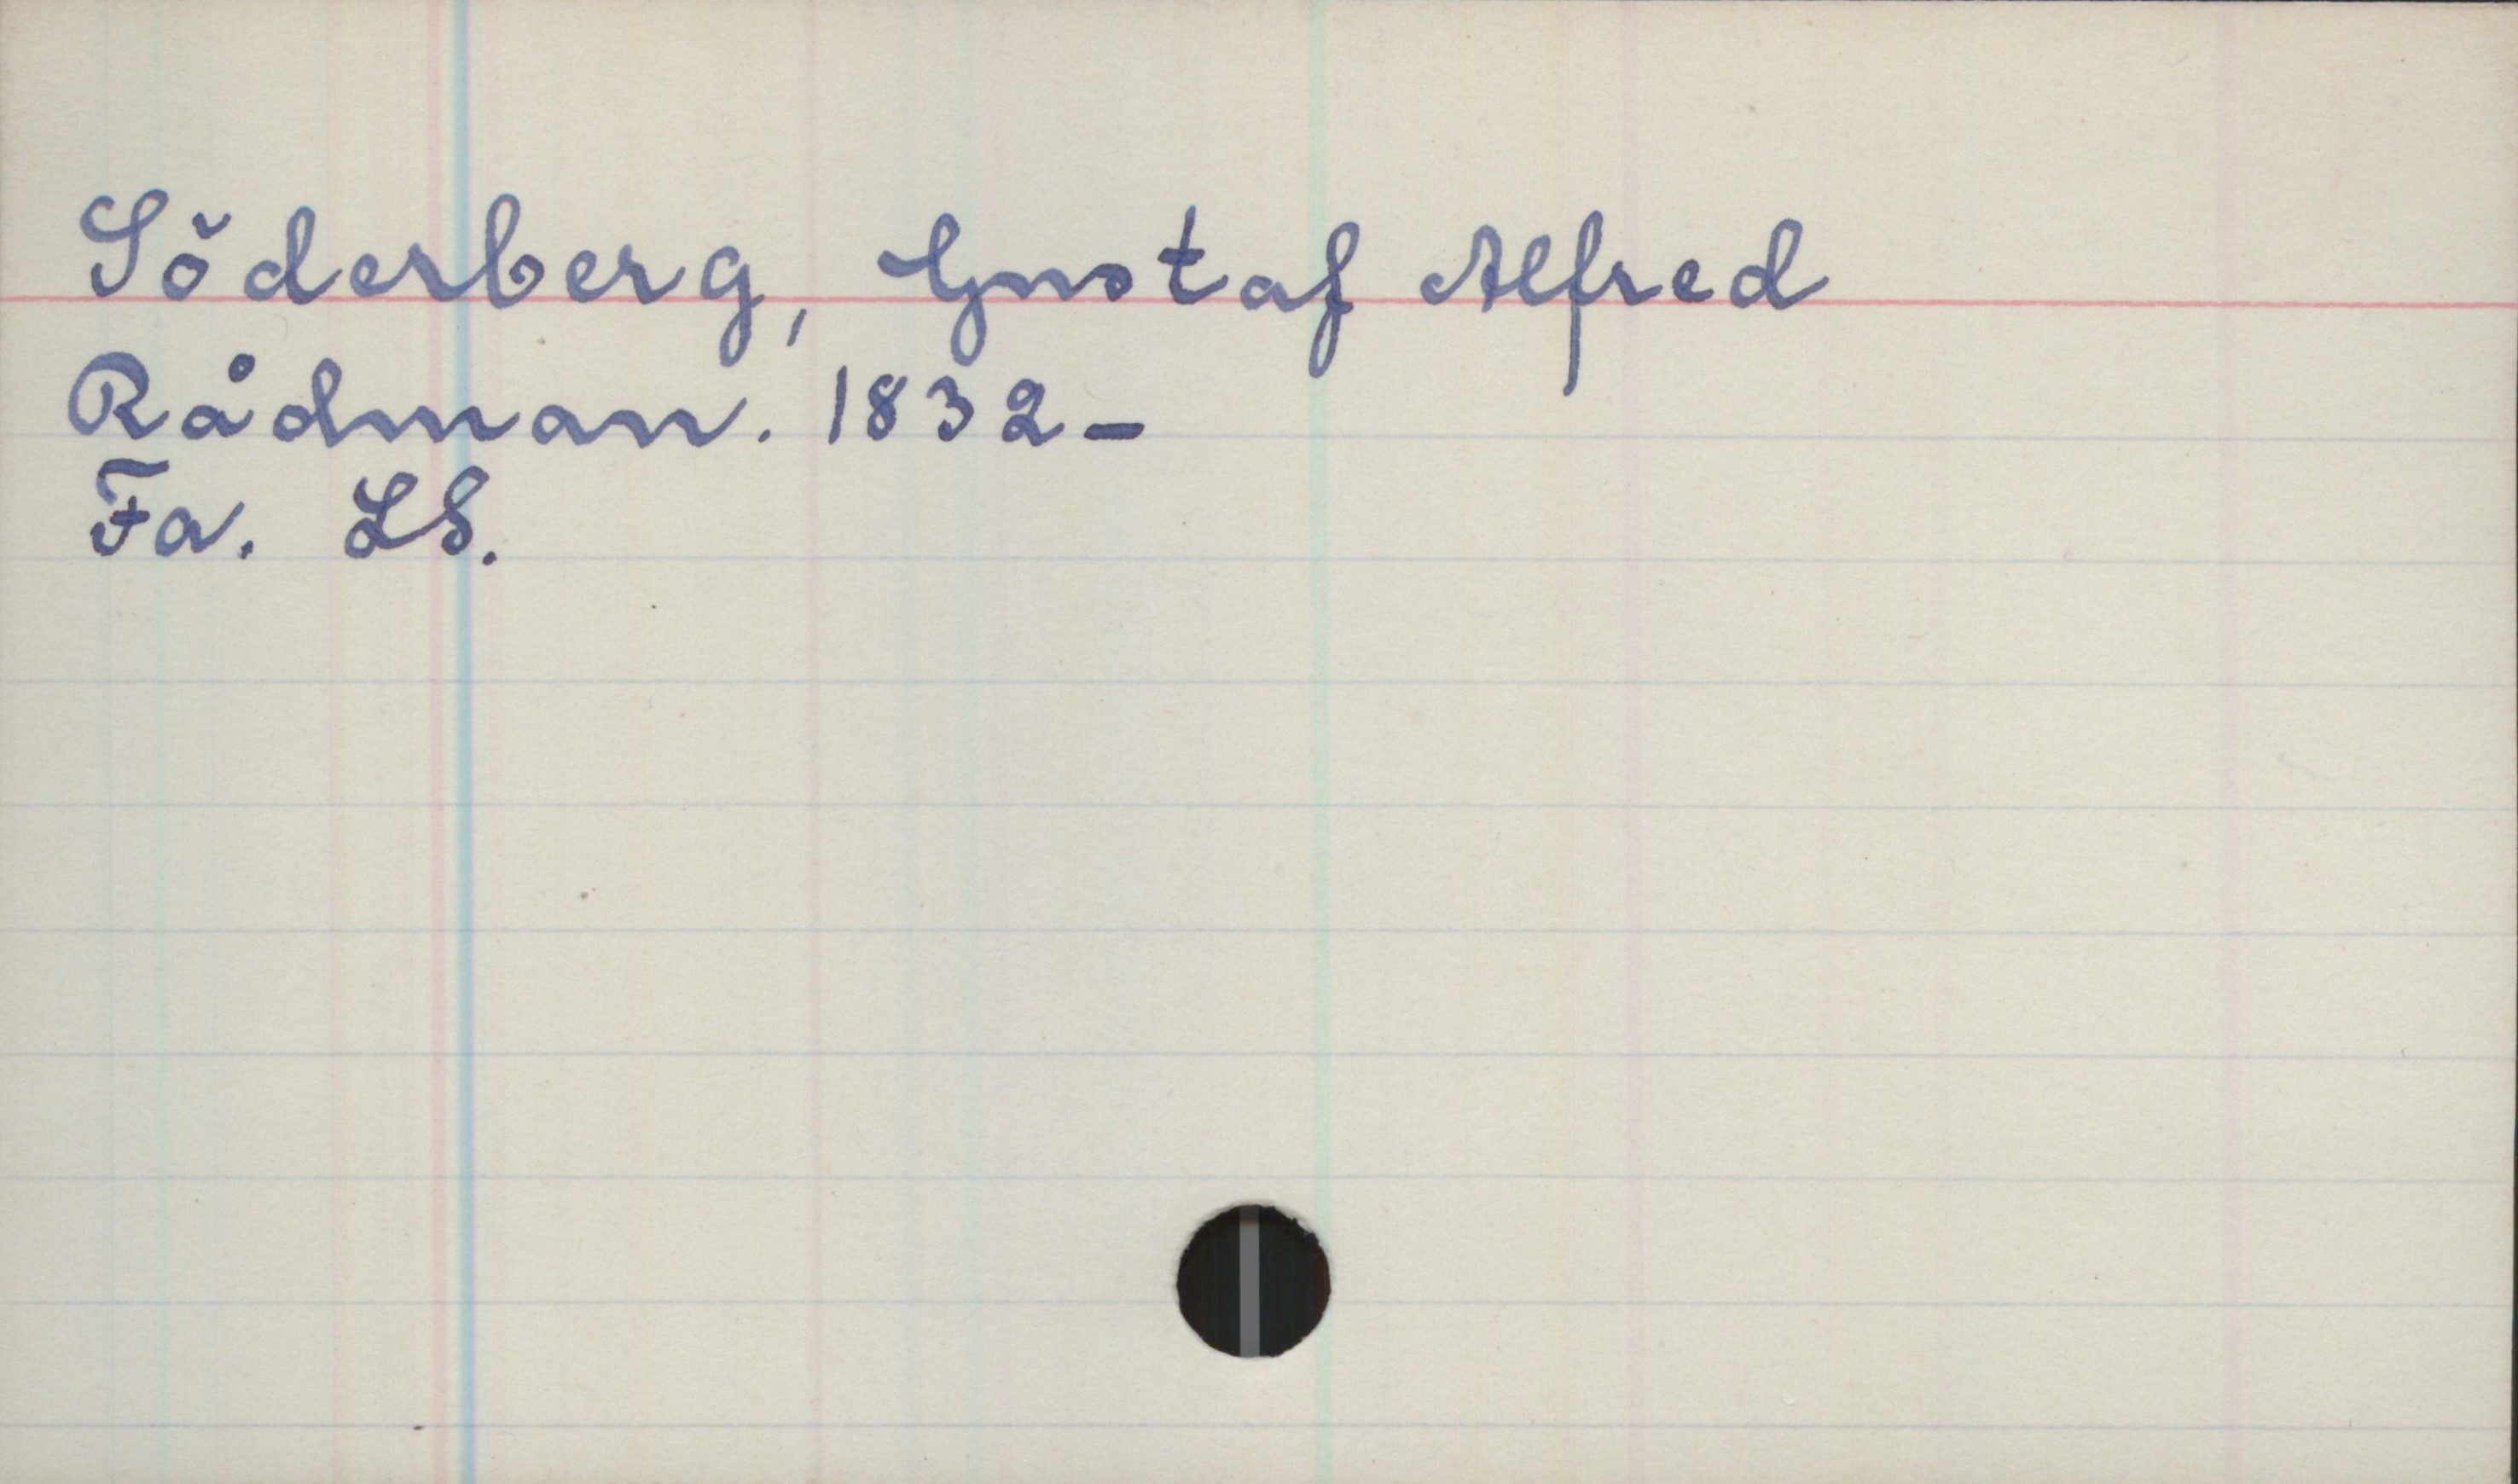 Söderberg, Gustaf Alfred
Rådman. 1832-
Fa. LS.